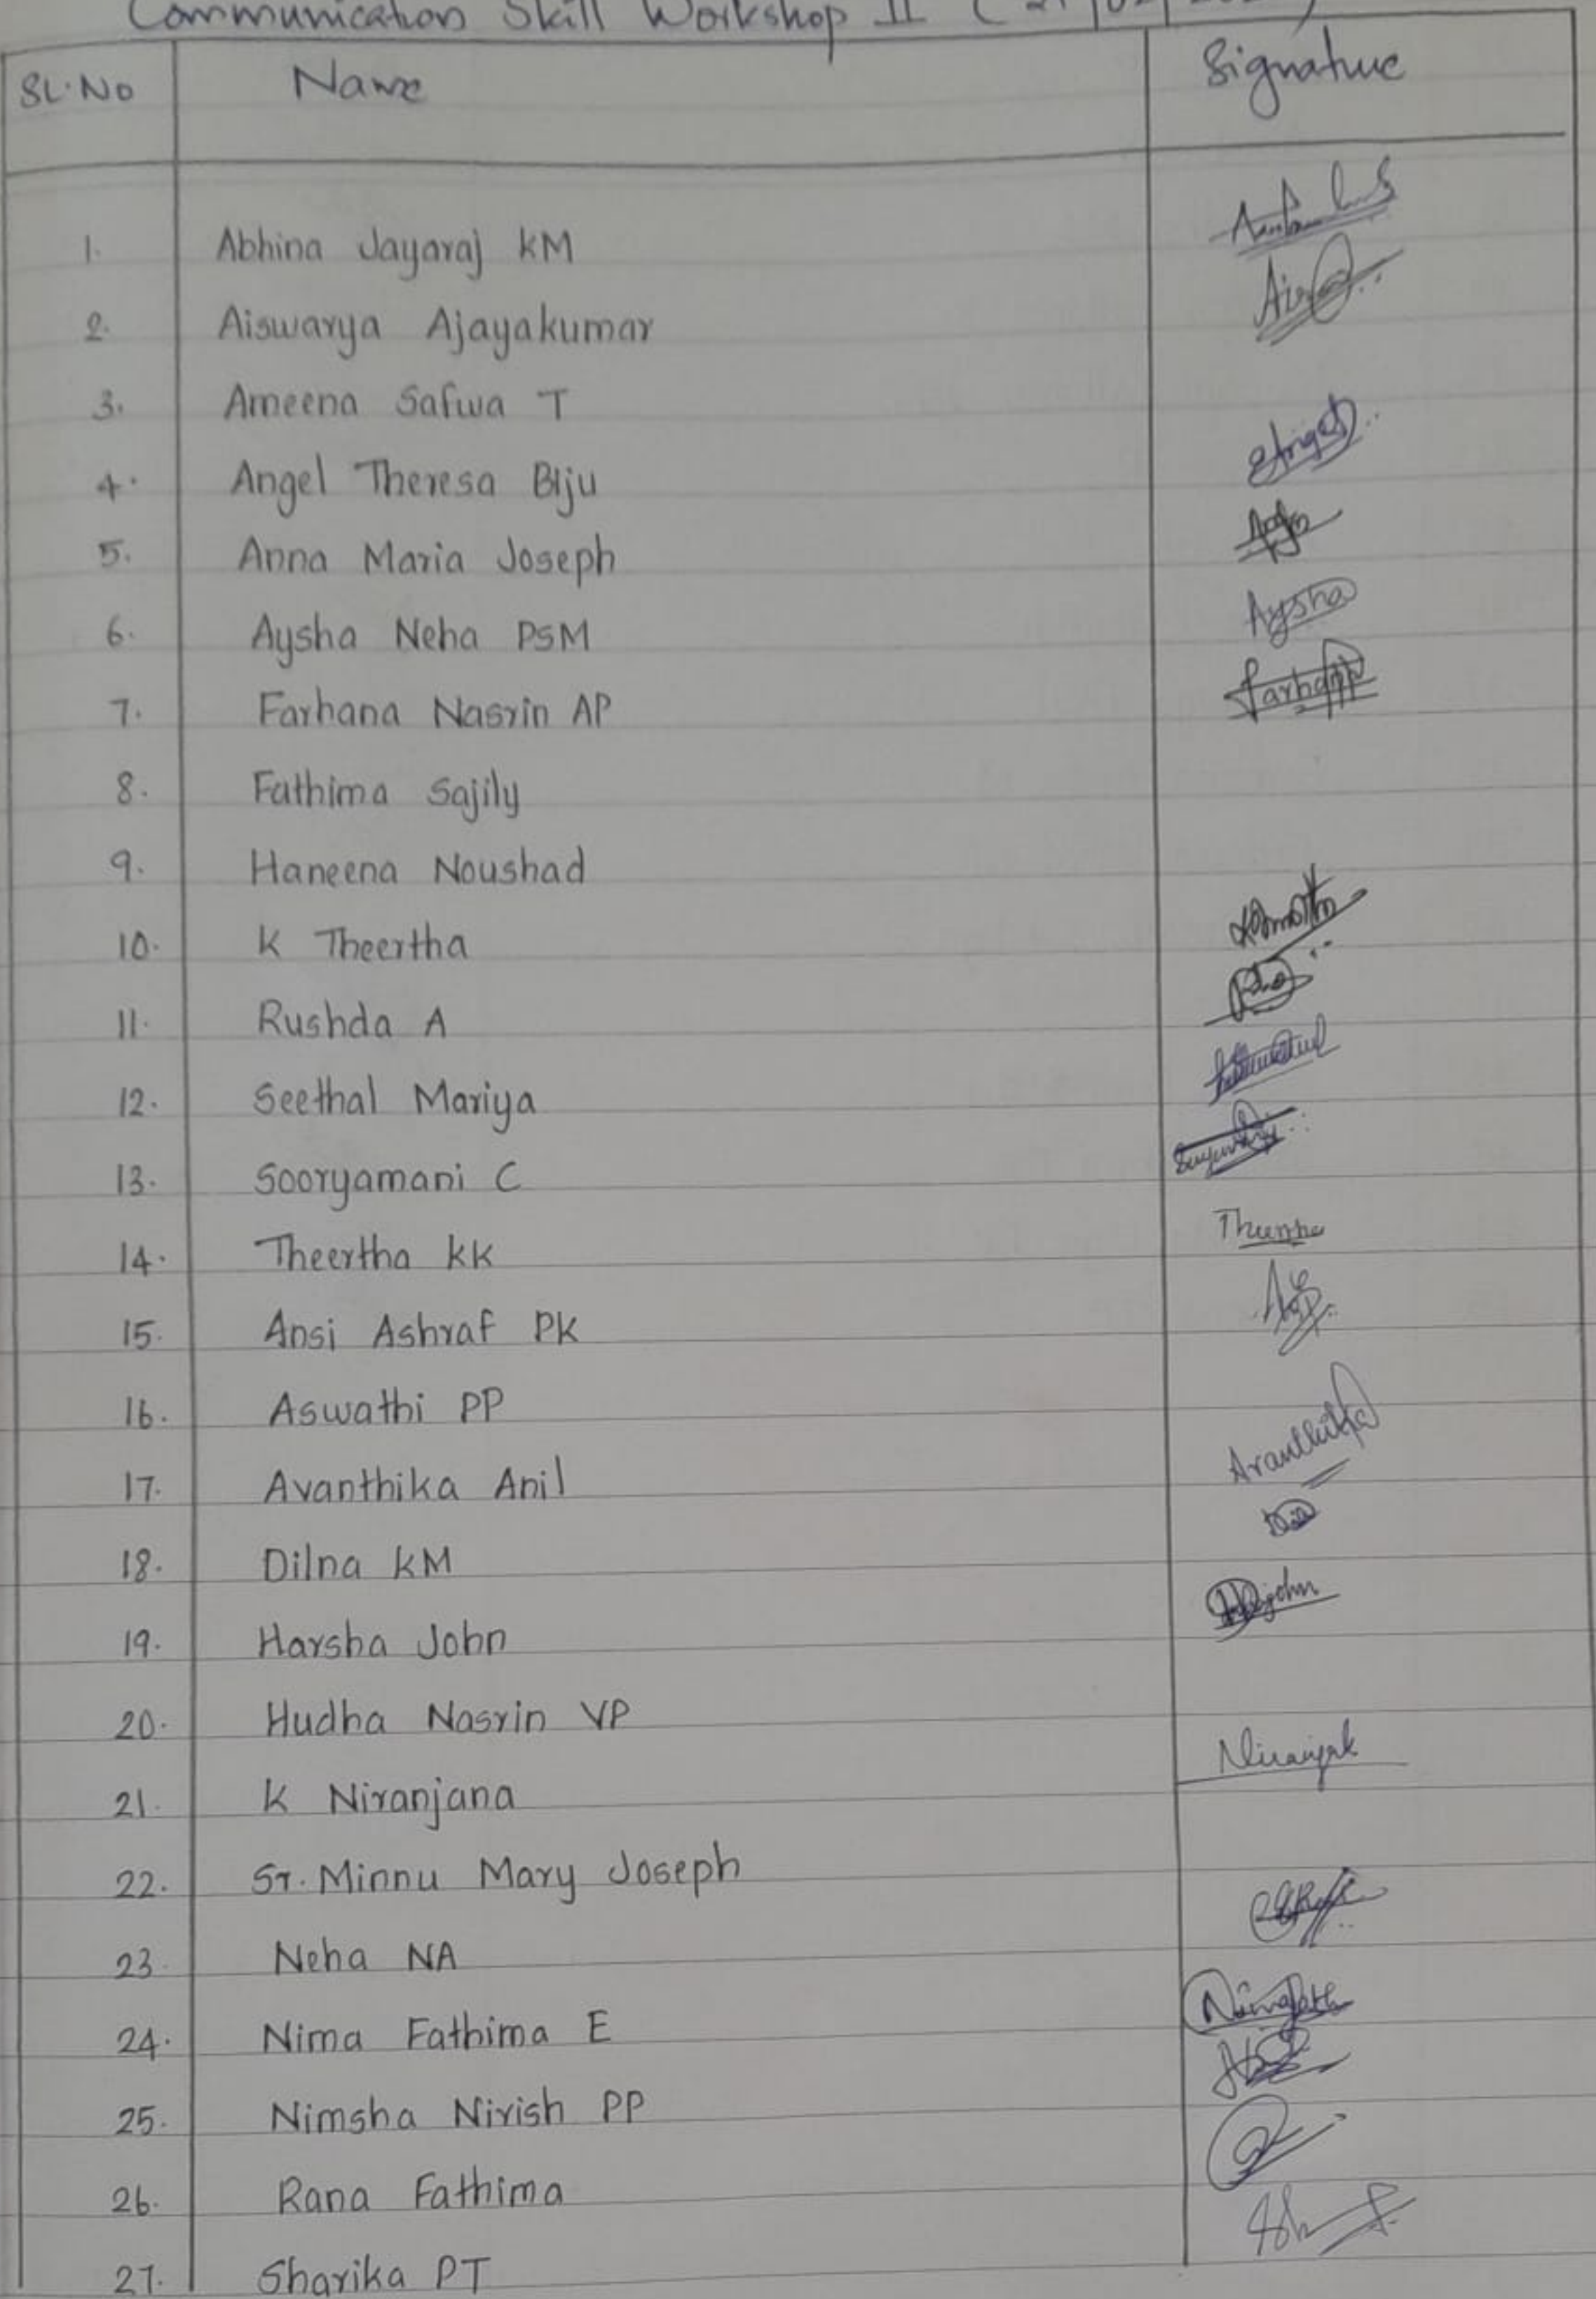 Communication Skill Workshop II
SL.No Name Signature
1. Abhina Jayaraj KM
2. Aiswarya Ajayakumar
3. Ameena Safwa T
4. Angel Theresa BIju
5. Anna Maria Joseph
6. Aysha Neha PSM Aysha
7. Farhana Nasrin AP Farhana
8. Fathima Sajily
9. Haneena Noushad
10. K Theertha
11. Rushda A
12. Seethal Mariya
13. Sooryamani C
14. Theertha KK
15. Ansi Ashraf PK
16. Aswathi PP
17. Avanthika Anil Avanthika
18. Dilna KM
19. Harsha John
20. Hudha Nasrin VP
21. K Niranjana
22. Sr. Minnu Mary Joseph
23. Neha NA
24. Nima Fathima E
25. Nimsha Nirish PP
26. Rana Fathima
27. Sharika PT